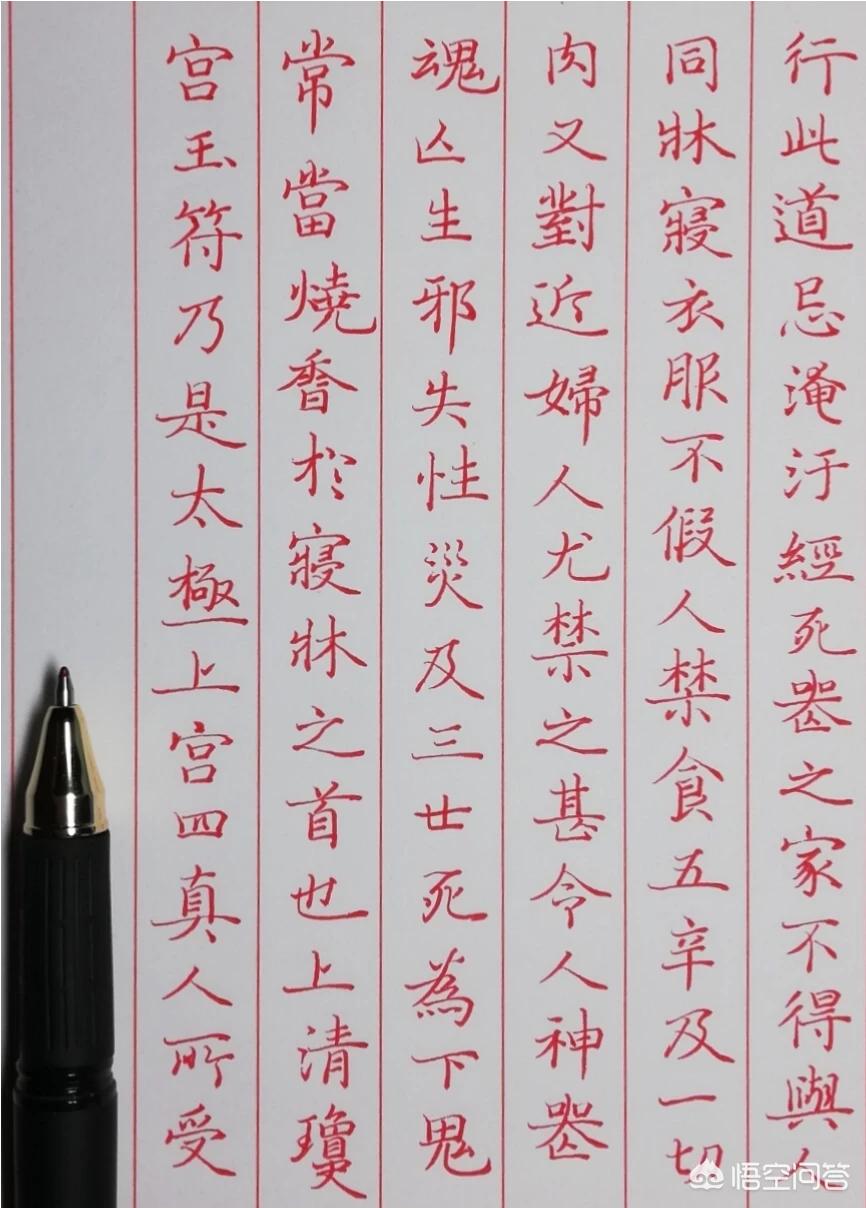 行此道忌淹汙經死喪之家不得與人
同牀寢衣服不假人禁食五辛及一切
肉又對近婦人尤禁之甚令人神喪
魂亡生邪失性災及三世死為下鬼
常當燒香於寢牀之首也上清瓊
宮玉符乃是太極上宮四真人所受
悟空问答